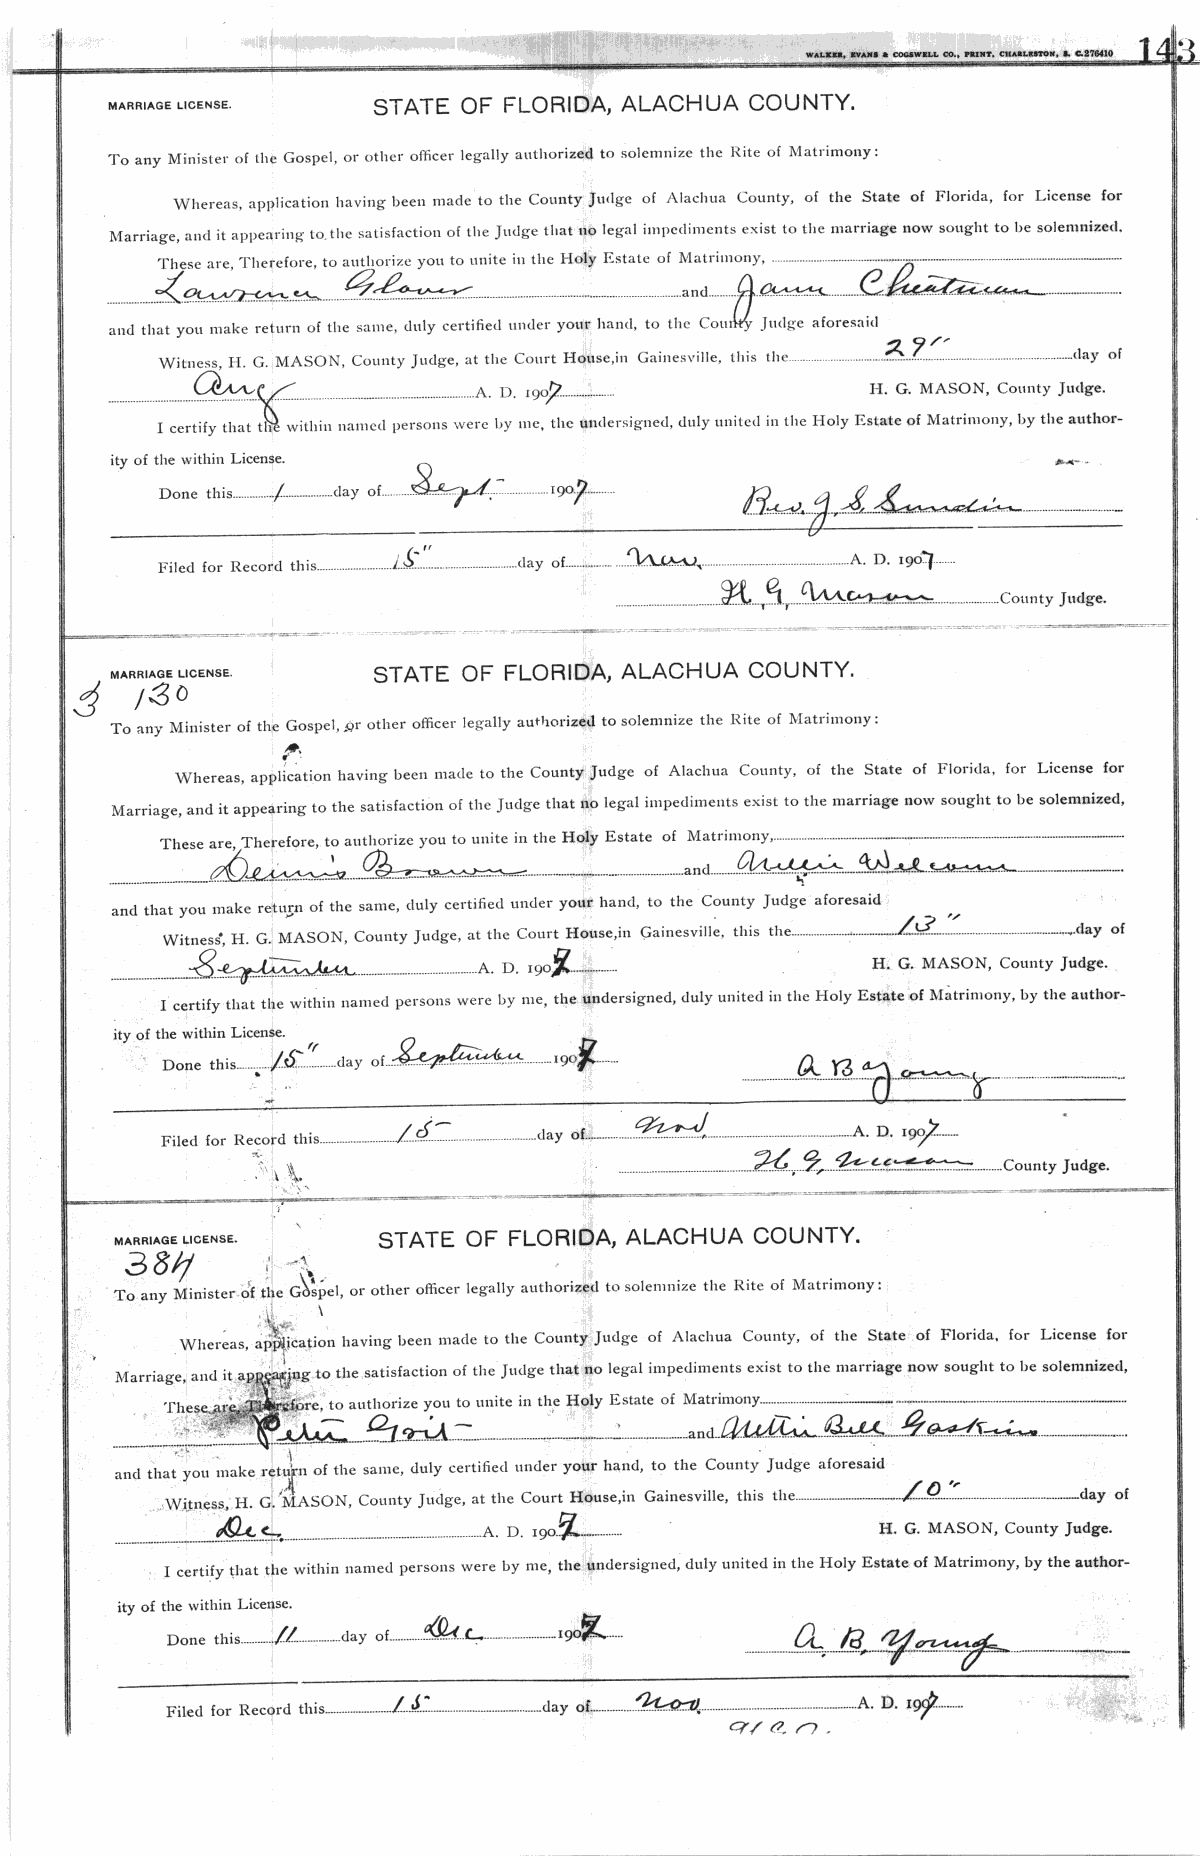 WALKER, EVANS & COGSWELL CO., PRINT, CHARLESTON, S. C. 276410 143
MARRIAGE LICENSE. STATE OF FLORIDA, ALACHUA COUNTY.
To any Minister of the Gospel, or other officer legally authorized to solemnize the Rite of Matrimony:
Whereas, application having been made to the County Judge of Alachua County, of the State of Florida, for License for
Marriage, and it appearing to the satisfaction of the Judge that no legal impediments exist to the marriage now sought to be solemnized.
These are, Therefore, to authorize you to unite in the Holy Estate of Matrimony,
Lawrence Glover and Janie Cheatman
and that you make return of the same, duly certified under your hand, to the County Judge aforesaid
Witness, H. G. MASON, County Judge, at the Court House, in Gainesville, this the 29" day of
Aug A. D. 1907 H. G. MASON, County Judge.
I certify that the within named persons were by me, the undersigned, duly united in the Holy Estate of Matrimony, by the author-
ity of the within License.
Done this 1 day of Sept. 1907 Rev. J. S. Sundin
Filed for Record this 15" day of Nov. A. D. 1907
H. G. Mason County Judge.
MARRIAGE LICENSE. STATE OF FLORIDA, ALACHUA COUNTY.
3 130
To any Minister of the Gospel, or other officer legally authorized to solemnize the Rite of Matrimony:
Whereas, application having been made to the County Judge of Alachua County, of the State of Florida, for License for
Marriage, and it appearing to the satisfaction of the Judge that no legal impediments exist to the marriage now sought to be solemnized,
These are, Therefore, to authorize you to unite in the Holy Estate of Matrimony,
Dennis Brown and Nellie Welcome
and that you make return of the same, duly certified under your hand, to the County Judge aforesaid
Witness, H. G. MASON, County Judge, at the Court House, in Gainesville, this the 13" day of
September A. D. 1907 H. G. MASON, County Judge.
I certify that the within named persons were by me, the undersigned, duly united in the Holy Estate of Matrimony, by the author-
ity of the within License.
Done this 15" day of September 1907 A B Young
Filed for Record this 15 day of Nov. A. D. 1907
H. G. Mason County Judge.
MARRIAGE LICENSE. STATE OF FLORIDA, ALACHUA COUNTY.
384
To any Minister of the Gospel, or other officer legally authorized to solemnize the Rite of Matrimony:
Whereas, application having been made to the County Judge of Alachua County, of the State of Florida, for License for
Marriage, and it appearing to the satisfaction of the Judge that no legal impediments exist to the marriage now sought to be solemnized,
These are, Therefore, to authorize you to unite in the Holy Estate of Matrimony
Peter Grit and Nettie Bell Gaskins
and that you make return of the same, duly certified under your hand, to the County Judge aforesaid
Witness, H. G. MASON, County Judge, at the Court House, in Gainesville, this the 10" day of
Dec. A. D. 1907 H. G. MASON, County Judge.
I certify that the within named persons were by me, the undersigned, duly united in the Holy Estate of Matrimony, by the author-
ity of the within License.
Done this 11 day of Dec 1907 A. B. Young
Filed for Record this 15 day of Nov. A. D. 1907